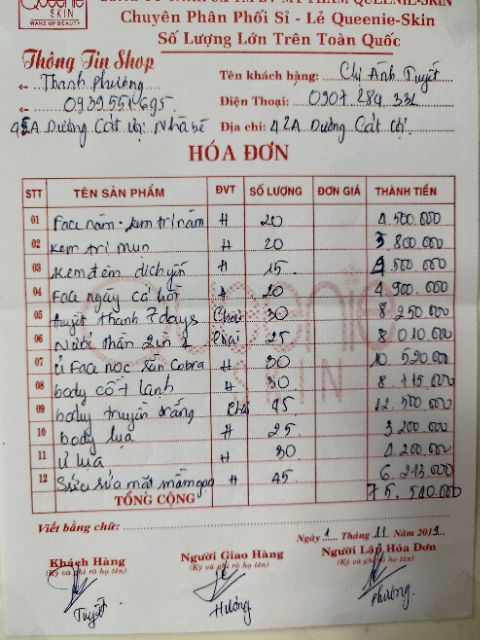 Queenie
SKIN
WAKE UP BEAUTY
Chuyên Phân Phối Sỉ - Lẻ Queenie-Skin
Số Lượng Lớn Trên Toàn Quốc
Thông Tin Shop
Thanh Phương
Tên khách hàng: Chị Ánh Tuyết
Điện Thoại: 0907 284 332
Dương Cát Lợi Nhà bè
Địa chỉ: 42A Dương Cát Lợi
HÓA ĐƠN
STT TÊN SẢN PHẨM ĐVT SỐ LƯỢNG ĐƠN GIÁ THÀNH TIỀN
01 Face nám - kem trị nám H 20 4.500.000
02 kem trị mụn H 20 3 800 000
03 kem đêm dịch yến H 15 4 500 000
04 Face ngày cá hồi H 20 4.900.000
05 huyết thanh 7 days Chai 30 8 250 000
06 Nước thần 2 in 1 Chai 25 8 010 000
07 ủ Face nọc rắn Cobra H 30 10 520 000
08 body cốt lạnh H 30
09 body truyền trắng Chai 45 12.500 000
10 body lụa H 25 3 200 000
11 ủ lụa H 30 4 200 000
12 Sữa rửa mặt H 45 6 213 000
TỔNG CỘNG 75.540.000
Viết bằng chữ:
Ngày 1 Tháng 11 Năm 2019
Khách Hàng Người Giao Hàng Người Lập Hóa Đơn
(Ký và ghi rõ họ tên) (Ký và ghi rõ họ tên) (Ký và ghi rõ họ tên)
Tuyết Hường Phương